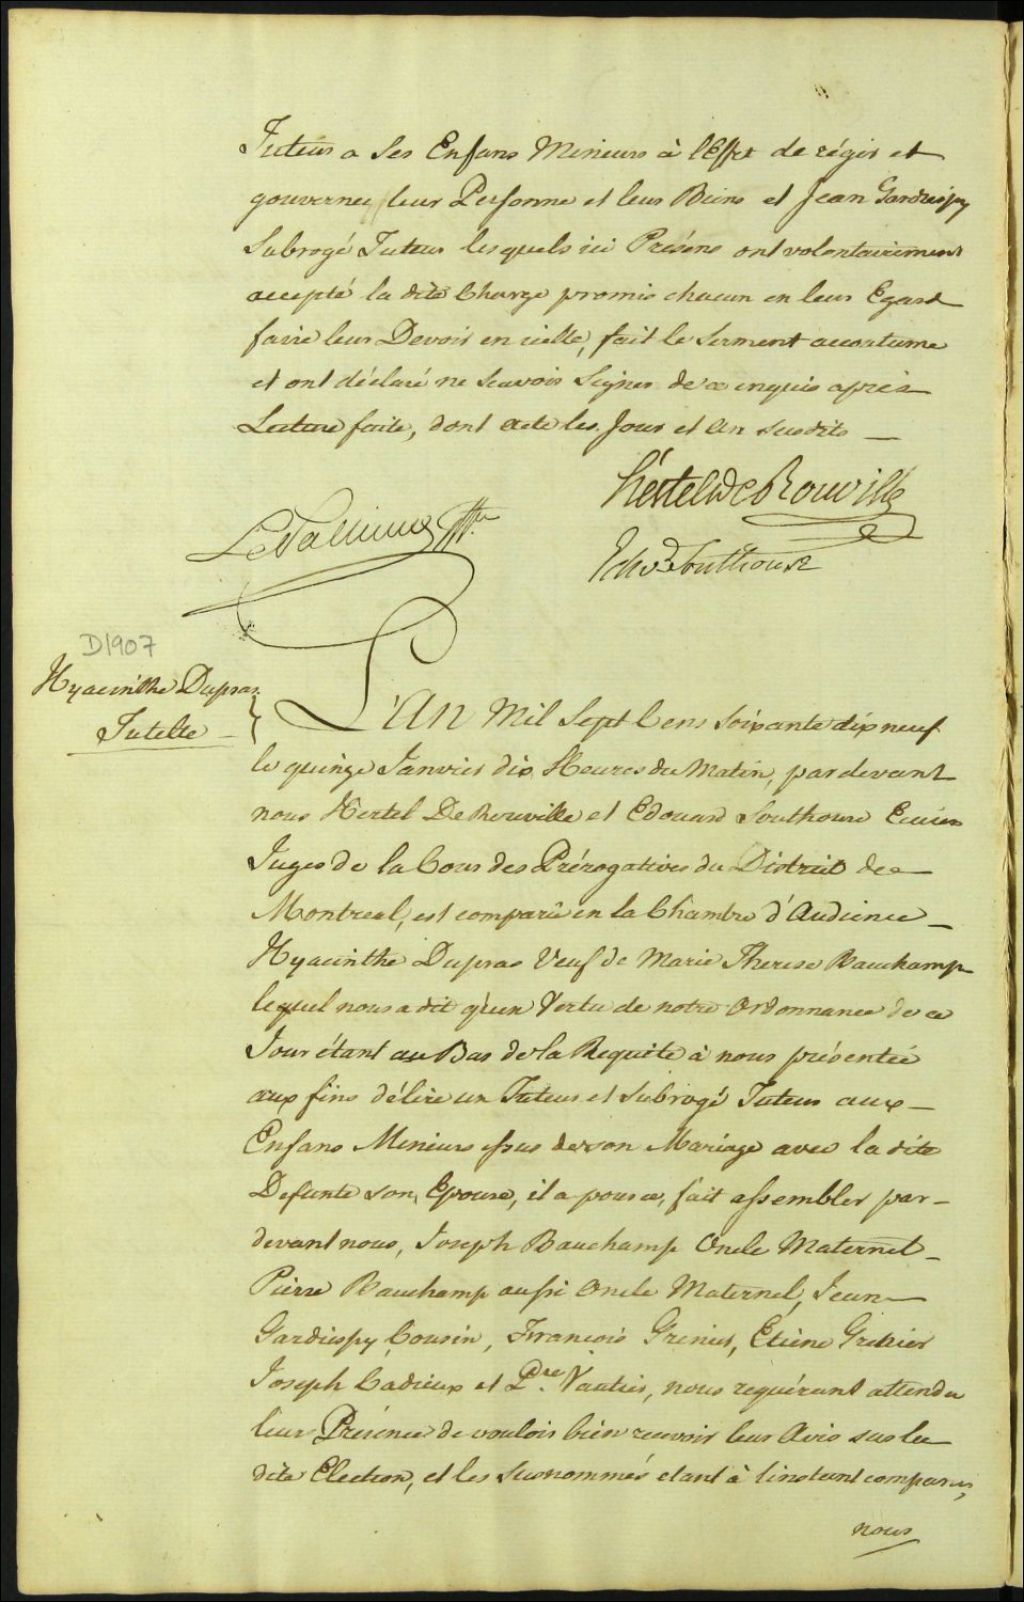 Tuteur a Ses Enfans Mineurs à l'Effet de régir et
gouverner leur Personne et leurs Biens et Jean Gardiespy
Subrogé Tuteur lesquels ici Présens ont volontairement
accepté la dite Charge promis chacun en leur Egard
faire leur Devoir en icelle, fait le Serment accoutume
et ont déclaré ne Scavoir Signer de ce enquis après
Lecture faite, dont acte les Jour et An susdits —
Hertel De Rouville
Edwd Southouse
D1907
Hyacinthe Dupras
Tutelle
L'An Mil Sept Cens Soixante dix neuf
le quinze Janvier dix Heures du Matin, pardevant
nous Hertel De Rouville et Edouard Southouse Ecuiers
Juges de la Cour des Prérogatives du District de
Montreal, est comparu en la Chambre d'Audience
Hyacinthe Dupras Veuf de Marie Therese Bauchamp
lequel nous a dit qu'en Vertu de notre Ordonnance de ce
Jour étant au Bas de la Requête à nous présentée
aux fins d'élire un Tuteur et Subrogé Tuteur aux
Enfans Mineurs issus de son Mariage avec la dite
Defunte son Epouse, il a pour ce, fait assembler par-
devant nous, Joseph Bauchamp Oncle Maternel
Pierre Bauchamp aussi Oncle Maternel, Jean
Gardiespy Cousin, Francois Grenier, Etiene Grenier
Joseph Cadieux et Pre. Vautier, nous requérant attendu
leur Présence de vouloir bien recevoir leur Avis sur la
dite Election, et les Susnommés etant à l'instant comparus,
nous